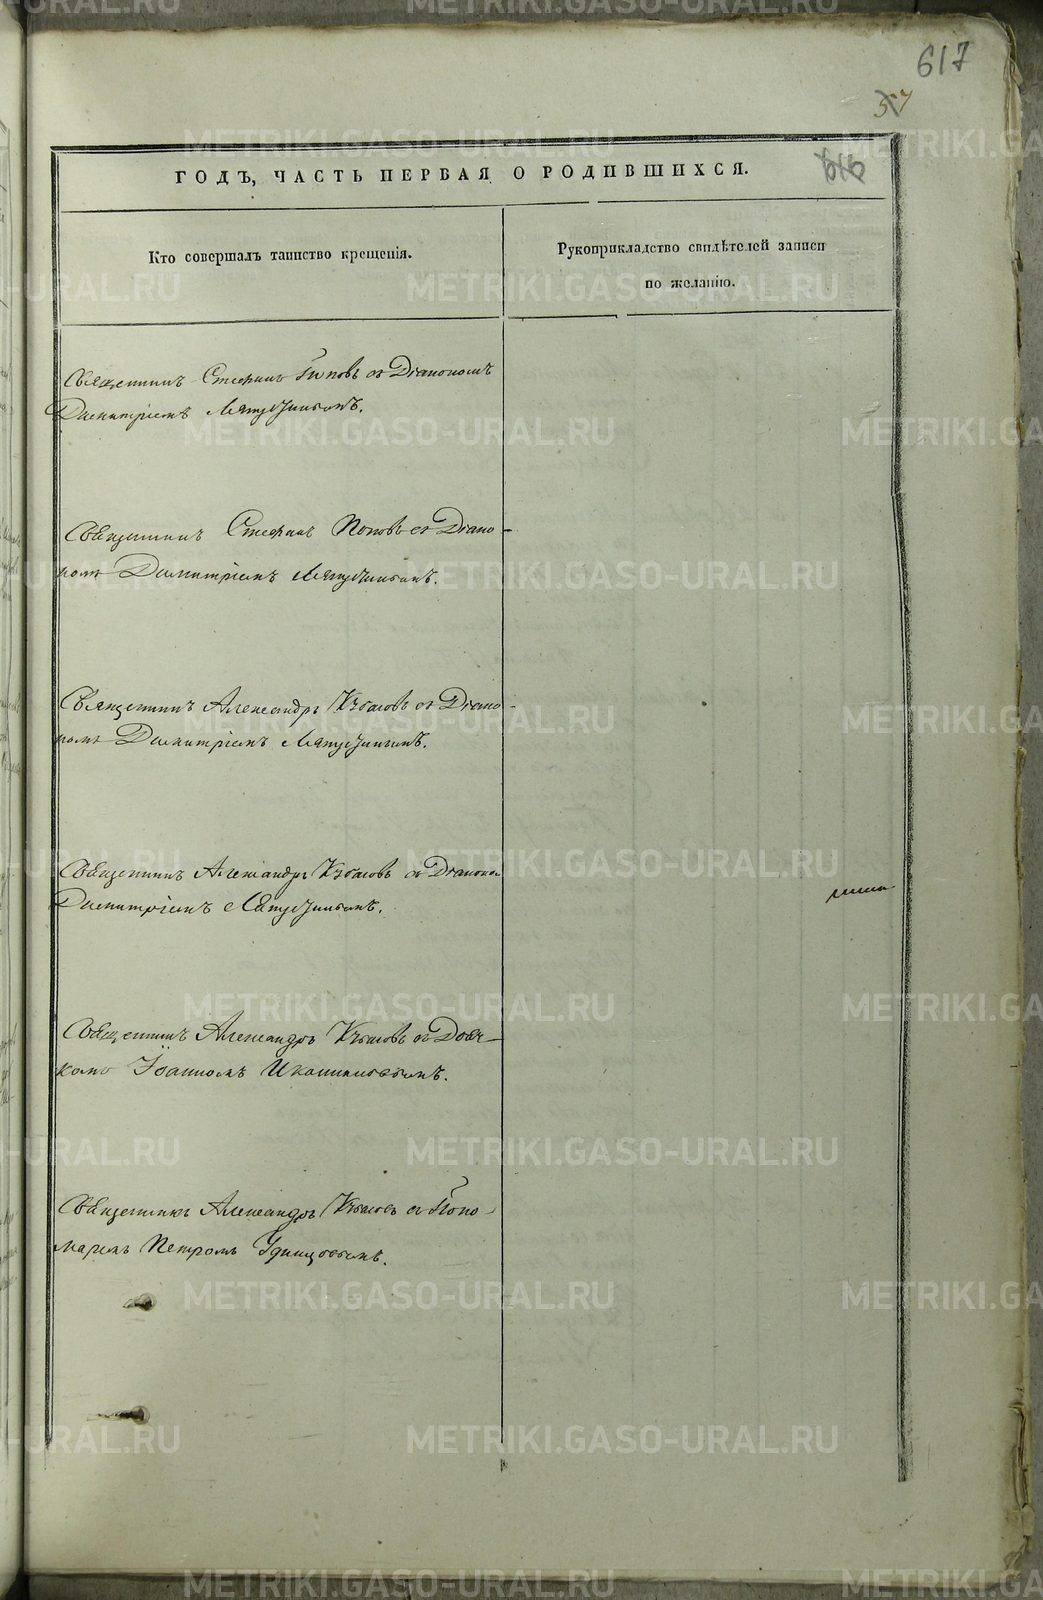 617
57
616
ГОДЪ, ЧАСТЬ ПЕРВАЯ О РОДИВШИХСЯ.
Кто совершалъ таинство крещенія.
Рукоприкладство свидѣтелей записи
по желанію.
Священникъ Стефанъ Поповъ съ Діакономъ
Димитріемъ
Священникъ Стефанъ Поповъ съ Діако-
номъ Димитріемъ
Священникъ Александръ съ Діако-
номъ Димитріемъ
Священникъ Александръ съ Діакономъ
Димитріемъ
Священникъ Александръ съ Дьяч-
комъ Іоанномъ Иконниковымъ.
Священникъ Александръ съ Поно-
маремъ Петромъ Удинцовымъ.
METRIKI.GASO-URAL.RU